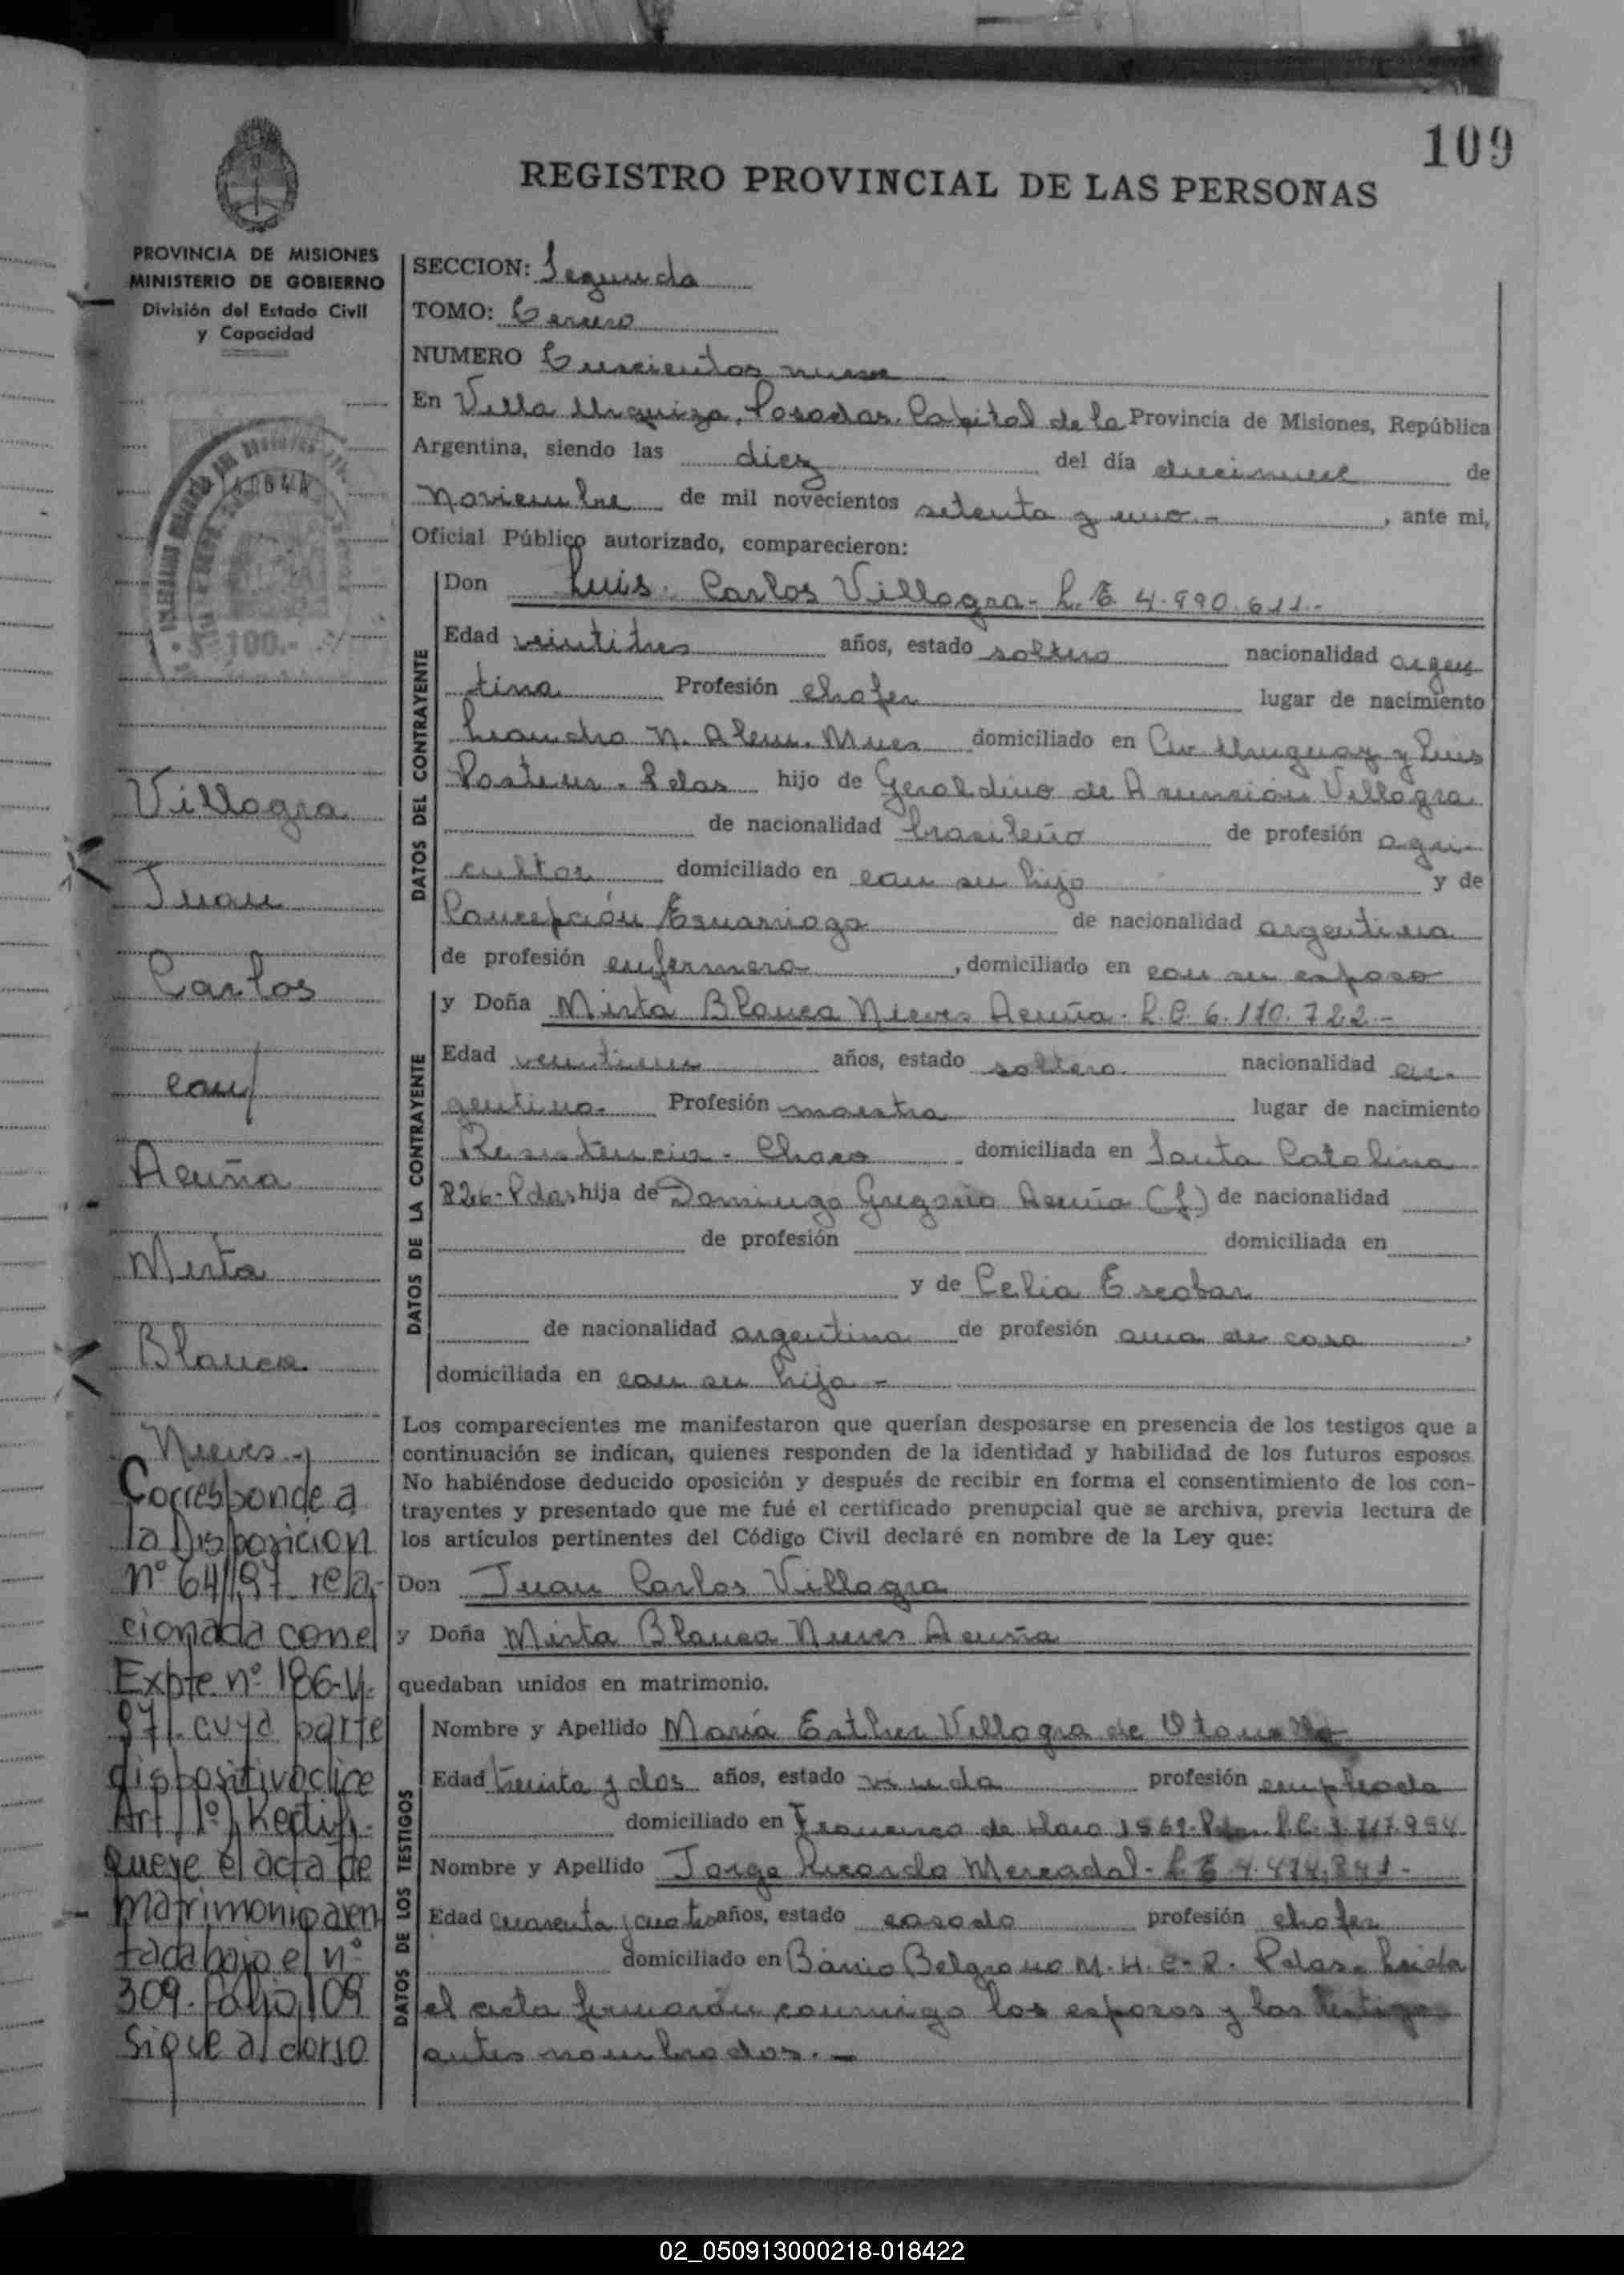 109
REGISTRO PROVINCIAL DE LAS PERSONAS
PROVINCIA DE MISIONES
MINISTERIO DE GOBIERNO
División del Estado Civil
y Capacidad
$ 100.-
Villagra
Juan
Carlos
con
Acuña
Mirta
Blanca
Nieves.-
Corresponde a
la Disposicion
nº 64/97 rela-
cionada con el
Expte nº 186-V-
97/. cuya parte
dispositiva dice
Art. 1º) Rectifi-
quese el acta de
matrimonio asen
tada bajo el nº
309. folio 109
sigue al dorso
SECCION: Segunda
TOMO: Tercero
NUMERO Trescientos nueve
En Villa Urquiza, Posadas, Capital de la Provincia de Misiones, República
Argentina, siendo las diez del día diecinueve de
Noviembre de mil novecientos setenta y uno.- , ante mi,
Oficial Público autorizado, comparecieron:
DATOS DEL CONTRAYENTE
Don Luis Carlos Villagra - L.E 4.990.611.-
Edad veintitres años, estado soltero nacionalidad argen
tina Profesión chofer lugar de nacimiento
Leandro N. Alem. Mnes domiciliado en Av Uruguay y Luis
Pasteur. Pdas hijo de Geraldino de Asunción Villagra
de nacionalidad brasileño de profesión agri-
cultor domiciliado en con su hijo y de
Concepción de nacionalidad argentina
de profesión enfermera , domiciliado en con su esposo
DATOS DE LA CONTRAYENTE
y Doña Mirta Blanca Nieves Acuña - L.C. 6.110.722 -
Edad años, estado soltera nacionalidad ar-
gentina. Profesión maestra lugar de nacimiento
Resistencia - Chaco domiciliada en Santa Catalina
826 - Pdas hija de Domingo Gregorio Acuña (f) de nacionalidad
de profesión domiciliada en
y de Celia Escobar
de nacionalidad argentina de profesión ama de casa ,
domiciliada en con su hija -
Los comparecientes me manifestaron que querían desposarse en presencia de los testigos que a
continuación se indican, quienes responden de la identidad y habilidad de los futuros esposos
No habiéndose deducido oposición y después de recibir en forma el consentimiento de los con-
trayentes y presentado que me fué el certificado prenupcial que se archiva, previa lectura de
los artículos pertinentes del Código Civil declaré en nombre de la Ley que:
Don Juan Carlos Villagra
y Doña Mirta Blanca Nieves Acuña
quedaban unidos en matrimonio.
DATOS DE LOS TESTIGOS
Nombre y Apellido María Esther Villagra de
Edad treinta y dos años, estado viuda profesión empleada
domiciliado en Francisco de Haro 1569 - Pdas L.C. 3.717.954
Nombre y Apellido Jorge Ricardo Mercadal - L.E
Edad cuarenta y cuatro años, estado casado profesión chofer
domiciliado en Barrio Belgrano M. H. C- 2. Pdas. Leida
el acta firmarán conmigo los esposos y los testigos
antes nombrados. -
02_050913000218-018422